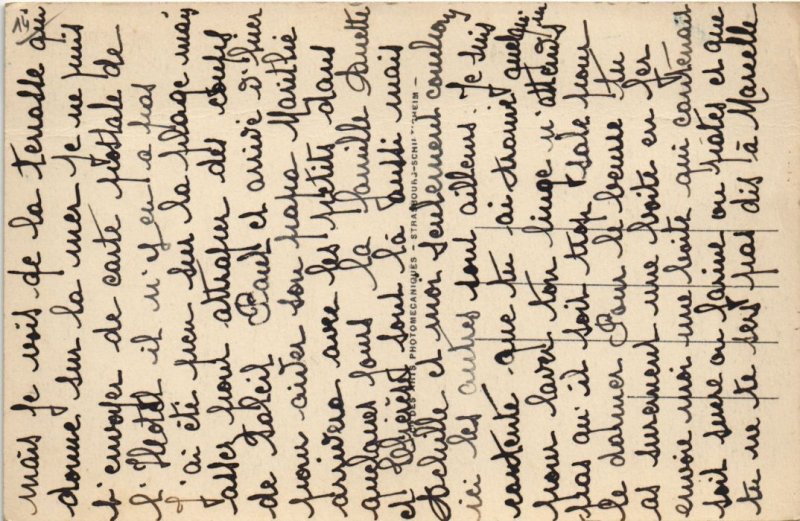 mais je vois de la terrasse qui
donne sur la mer je ne puis
t'envoyer de carte postale de
l'Hotel il n'y en a pas
J'ai été peu sur la plage mais
assez pour attraper des coups
de soleil Paul est arrivé d'hier
pour aider son papa Marithé
arrivera avec les petits dans
quelques jours la famille Janette
et sont là aussi mais
Achille et moi seulement couchons
ici les autres sont ailleurs. Je suis
contente que tu ai trouvé quelqu'un
pour laver ton linge n'attends
pas qu'il soit trop sale pour
le donner Pour le beurre tu
as surement une boite en fer
envoie moi une boite qui contenait
soit sucre ou farine ou pâtes et que
tu ne te sers pas dis à Marcelle
PHOTOMECANIQUES - STRASBOURG-SCHILTIGHEIM -